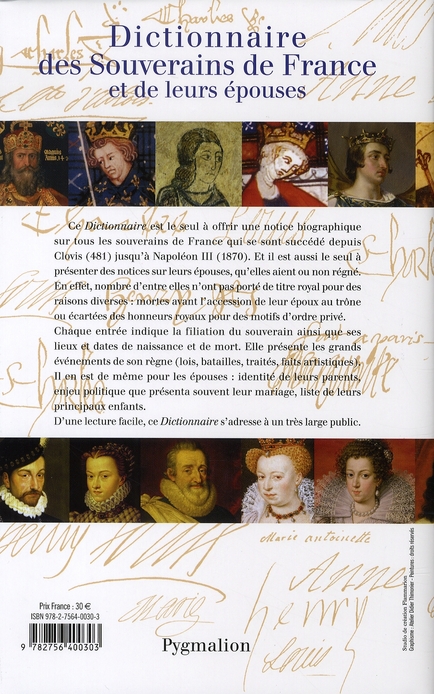 Charles
Dictionnaire
des Souverains de France
et de leurs épouses
Ce Dictionnaire est le seul à offrir une notice biographique
sur tous les souverains de France qui se sont succédé depuis
Clovis (481) jusqu'à Napoléon III (1870). Et il est aussi le seul à
présenter des notices sur leurs épouses, qu'elles aient ou non régné.
En effet, nombre d'entre elles n'ont pas porté de titre royal pour des
raisons diverses : mortes avant l'accession de leur époux au trône
ou écartées des honneurs royaux pour des motifs d'ordre privé.
Chaque entrée indique la filiation du souverain ainsi que ses
lieux et dates de naissance et de mort. Elle présente les grands
événements de son règne (lois, batailles, traités, faits artistiques).
Il en est de même pour les épouses : identité de leurs parents,
enjeu politique que présenta souvent leur mariage, liste de leurs
principaux enfants.
D'une lecture facile, ce Dictionnaire s'adresse à un très large public.
Marie antoinette
Anne
henry
Louis
Prix France : 30 €
ISBN 978-2-7564-0030-3
9 782756 400303
Pygmalion
Studio de création Flammarion
Graphisme : Atelier Didier Thimonier - Peintures : droits réservés